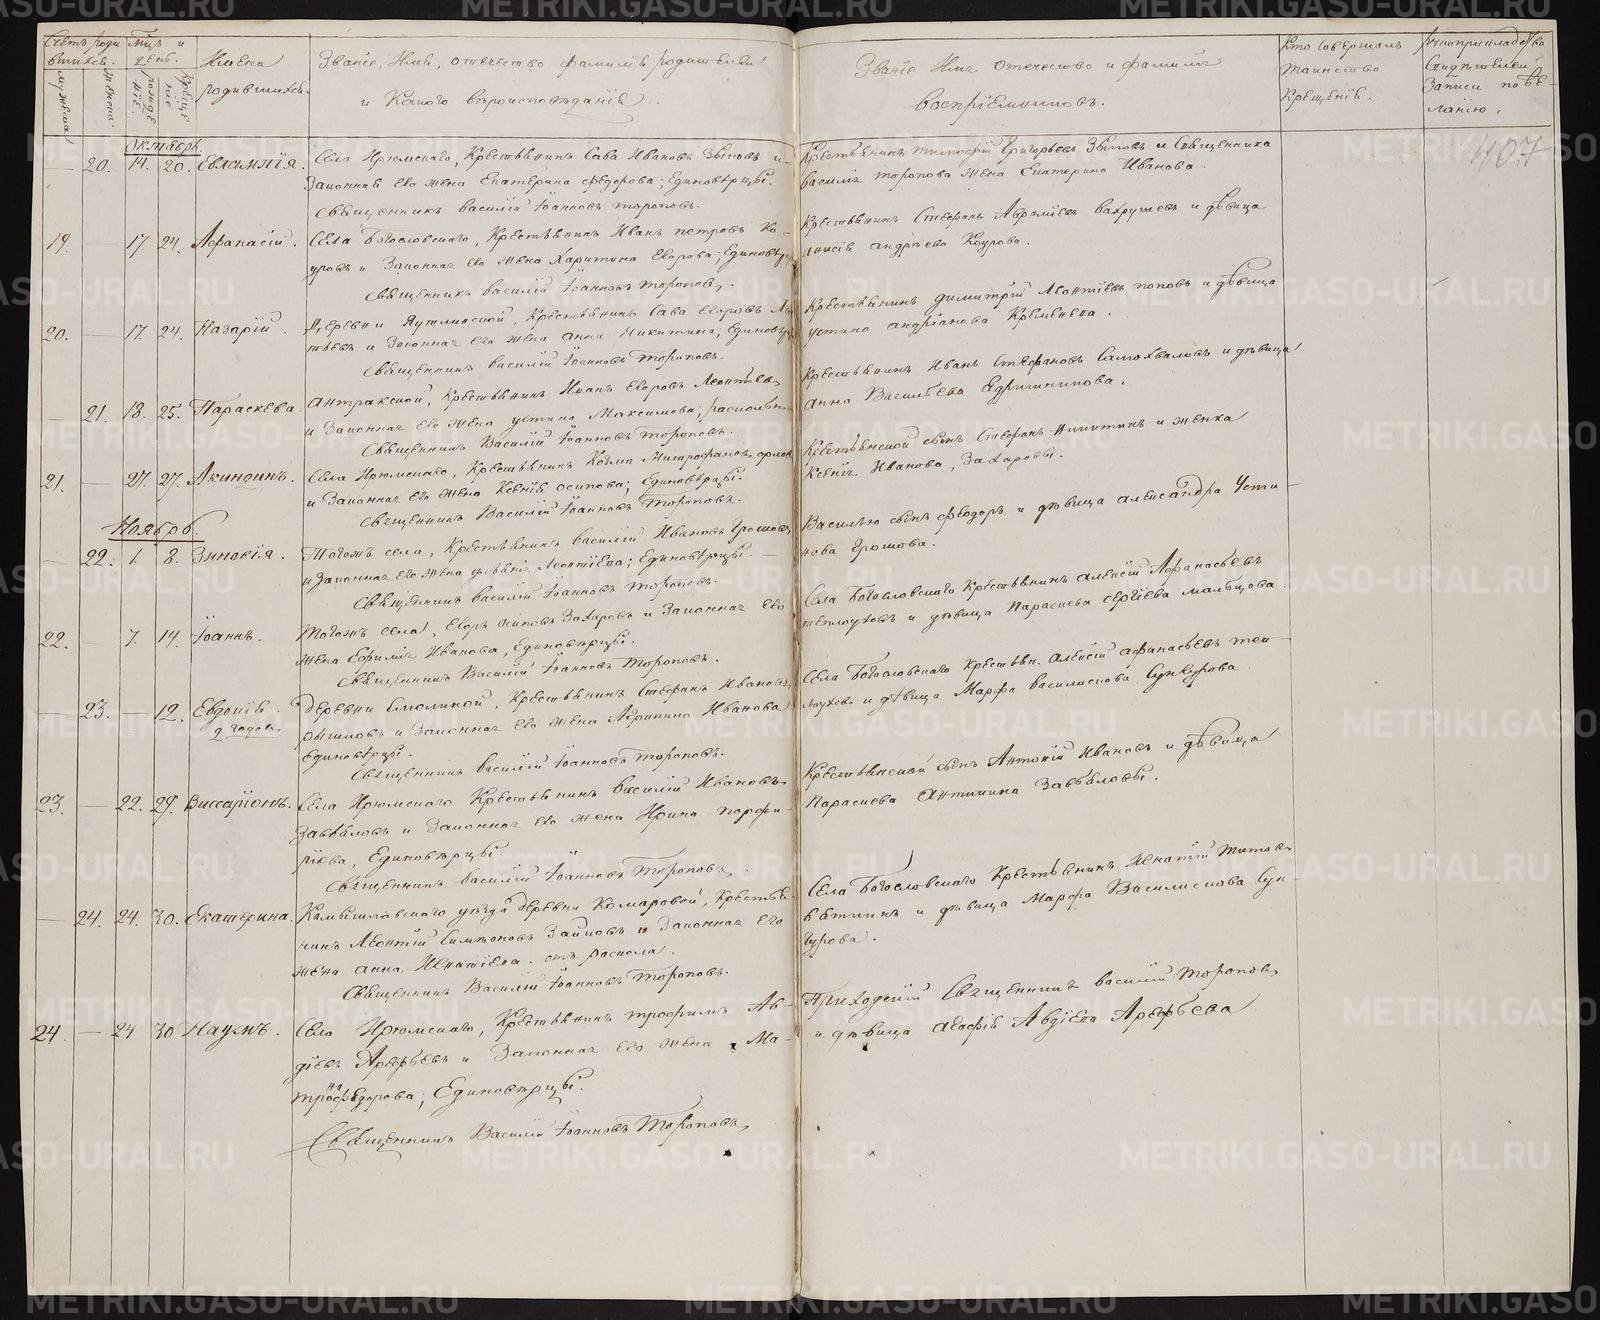 Счетъ роди
вшихся.
Мужеска
Женска.
Мѣц. и
день.
рожде
нія.
Креще
нія
Имена
родившихся.
Званіе, Имя, отечество фамилія родителей
и Какого вѣроисповѣданія.
Званіе Имя отечество и фамилія
воспріемниковъ.
Кто совершалъ
таинство
Крещенія.
Рукоприкладство
Свидѣтелей
Записи по же-
ланію.
407
Октябрь.
— 20. 14. 20. Евлампія.
Села Ирюмскаго, Крестьянинъ Сава Ивановъ Зыковъ и
Законная его жена Екатерина Федорова; Единовѣрцы.
Священникъ Василій Іоанновъ Тороповъ.
Крестьянинъ Тимофей Григорьевъ Зыковъ и Священника
Василія Торопова жена Екатерина Иванова.
19. — 17. 24. Афанасій.
Села Богословскаго, Крестьянинъ Иванъ Петровъ Ко-
уровъ и Законная его жена Харитина Егорова; Единовѣрцы
Священникъ Василій Іоанновъ Тороповъ.
Крестьянинъ Стефанъ Аврамiевъ Вахрушевъ и дѣвица
Анисія Андреева Коурова.
20. — 17. 24. Назарій.
Деревни Яутлинской, Крестьянинъ Сава Егоровъ Ле
тьевъ и Законная его жена Анна Никитина; Единовѣрцы
Священникъ Василій Іоанновъ Тороповъ.
Крестьянинъ Димитрій Леонтіевъ Поповъ и дѣвица
Устина Андріанова Кремлева.
— 21. 18. 25. Параскева
Антракской, Крестьянинъ Иванъ Егоровъ Леонтьевъ
и Законная его жена Устина Максимова; раскольники
Священникъ Василій Іоанновъ Тороповъ.
Крестьянинъ Иванъ Стефановъ Самохваловъ и дѣвица
Анна Васильева
21. — 27. 27. Акиндинъ.
Села Ирюмскаго, Крестьянинъ Козма Митрофановъ Орловъ
и Законная его жена Ксенія Осипова; Единовѣрцы.
Священникъ Василій Іоанновъ Тороповъ.
Крестьянской сынъ Стефанъ Никитинъ и женка
Ксенія Иванова, Захаровы.
Ноябрь.
— 22. 1. 8. Зиновія.
Тогожъ села, Крестьянинъ Василій Ивановъ Грошовъ
и Законная его жена Ульянія Леонтіева; Единовѣрцы.
Священникъ Василій Іоанновъ Тороповъ.
Василью сынъ Феодоръ и дѣвица Александра Усти-
нова Грошова.
22. — 7. 14. Іоаннъ.
Тогожъ села, Егоръ Осиповъ Захаровъ и Законная его
жена Ефимія Иванова, Единовѣрцы.
Священникъ Василій Іоанновъ Тороповъ.
Села Богословскаго Крестьянинъ Алексій Афанасьевъ
Теплоуховъ и дѣвица Параскева Сергіева Мальцова.
— 23. — 12. Евдокія.
2 годовъ.
Деревни Смолиной, Крестьянинъ Стефанъ Ивановъ
и Законная его жена Агрипина Иванова
Единовѣрцы.
Священникъ Василій Іоанновъ Тороповъ.
Села Богословскаго Крестьян. Алексій Афанасьевъ Теп-
лоуховъ и дѣвица Марфа Василискова Сункурова.
23. — 22. 29. Виссаріонъ.
Села Ирюмскаго Крестьянинъ Василій Ивановъ
Завьяловъ и Законная его жена Ирина Порфи-
ріева, Единовѣрцы.
Священникъ Василій Іоанновъ Тороповъ.
Крестьянской сынъ Антоній Ивановъ и дѣвица
Параскева Антипина Завьяловы.
— 24. 24. 30. Екатерина.
Камышловскаго уѣзда деревни Комаровой, Крестья-
нинъ Леонтій Симеоновъ Зайковъ и Законная его
жена Анна Игнатіева. отъ раскола.
Священникъ Василій Іоанновъ Тороповъ.
Села Богословскаго Крестьянинъ Игнатій Титовъ
Вяткинъ и дѣвица Марфа Василискова Сун-
гурова.
24. — 24 30 Наумъ.
Села Ирюмскаго, Крестьянинъ Трофимъ Ав-
діевъ Арефьевъ и Законная его жена Ма-
трона Федорова; Единовѣрцы.
Священникъ Василій Іоанновъ Тороповъ.
Приходскій Священникъ Василій Тороповъ
и дѣвица Агафія Авдіева Арефьева